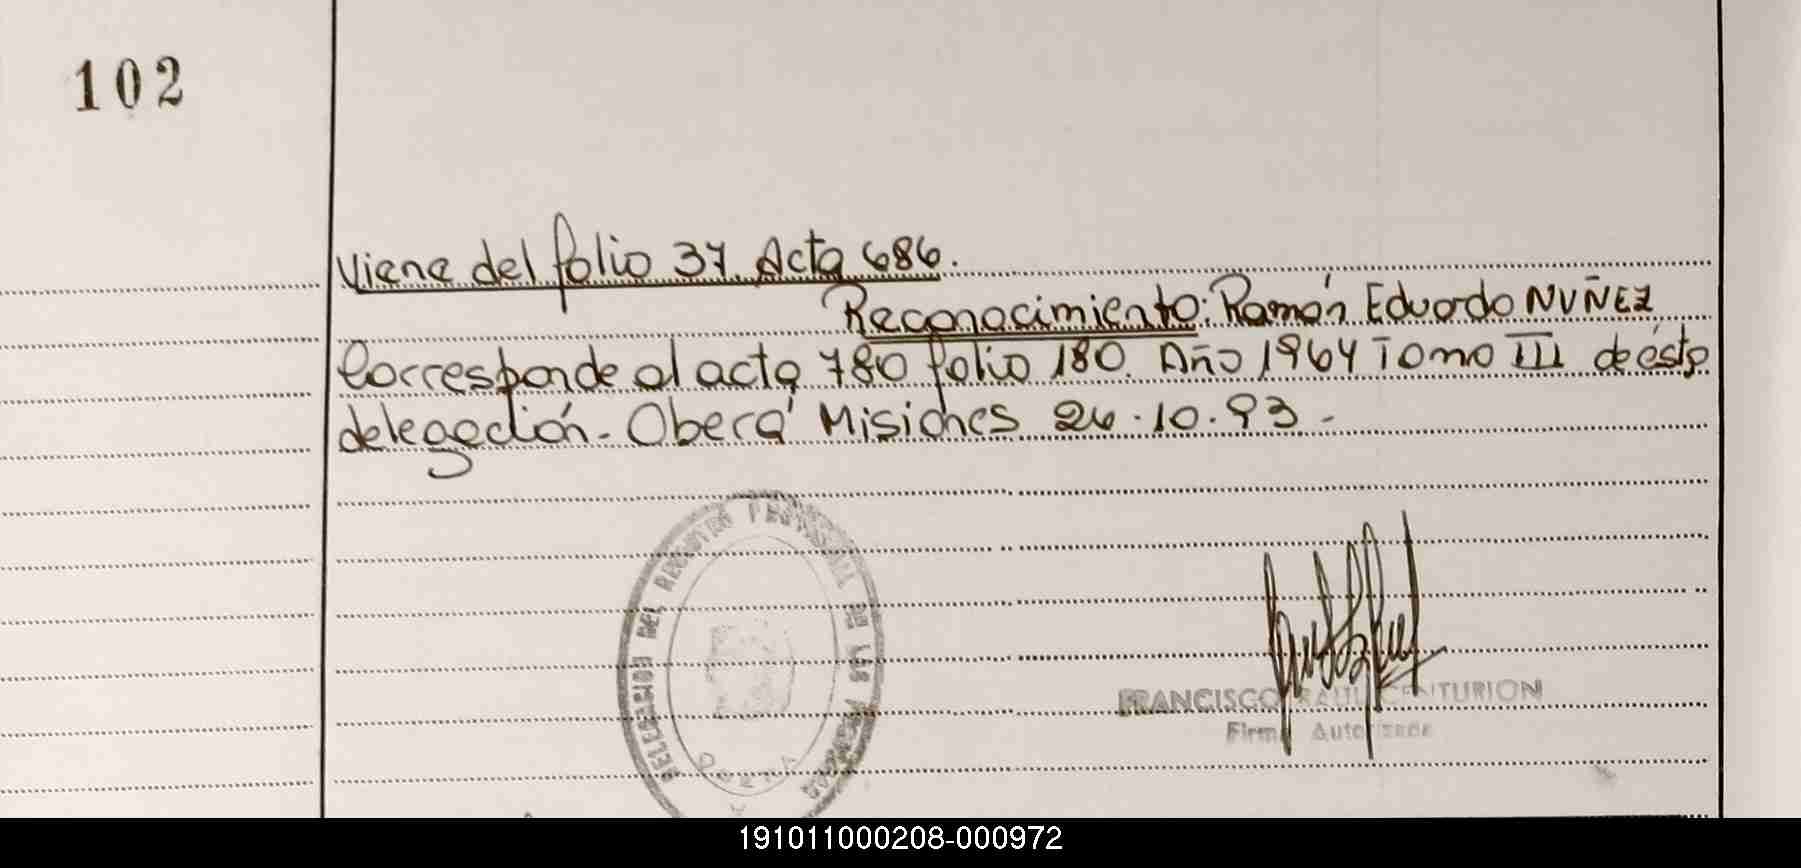 102
Viene del folio 37. Acta 686.
Reconocimiento: Ramón Eduardo NUÑEZ
Corresponde al acta 780 folio 180. Año 1964 Tomo III de ésta
delegación - Oberá Misiones 26.10.93 -
DELEGACION DEL REGISTRO PROVINCIAL DE LAS PERSONAS
OBERA
FRANCISCO RAUL CENTURION
Firma Autorizada
191011000208-000972